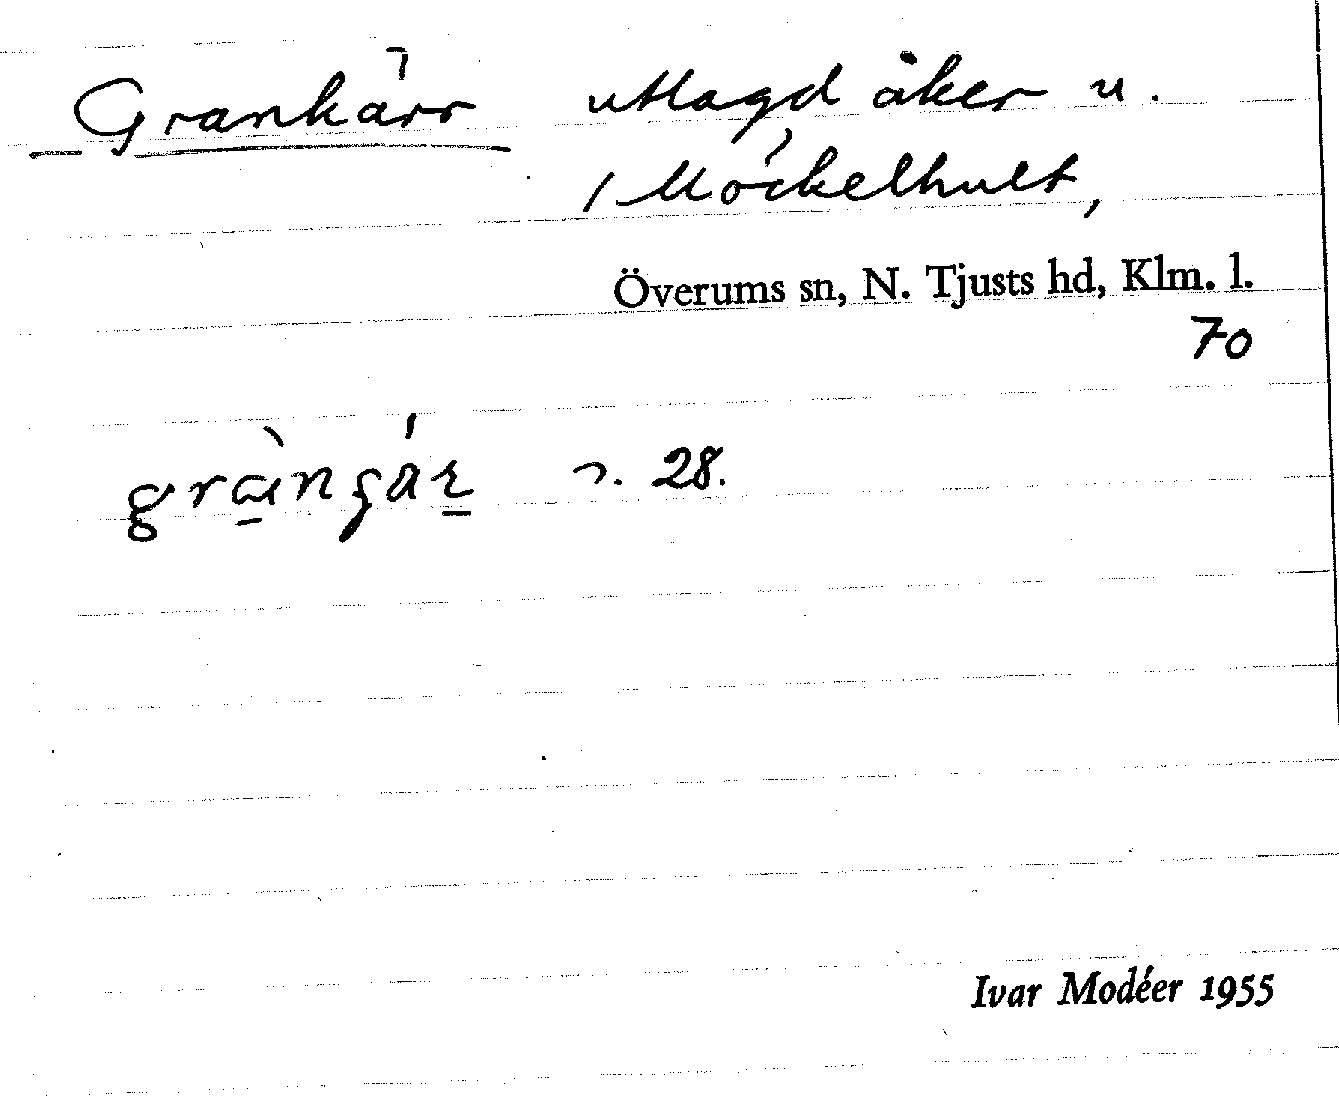 Grankärr utlagd åker u.
1 Möckelhult,
Överums sn, N. Tjusts hd, Klm. l.
70
28.
Ivar Modéer 1955